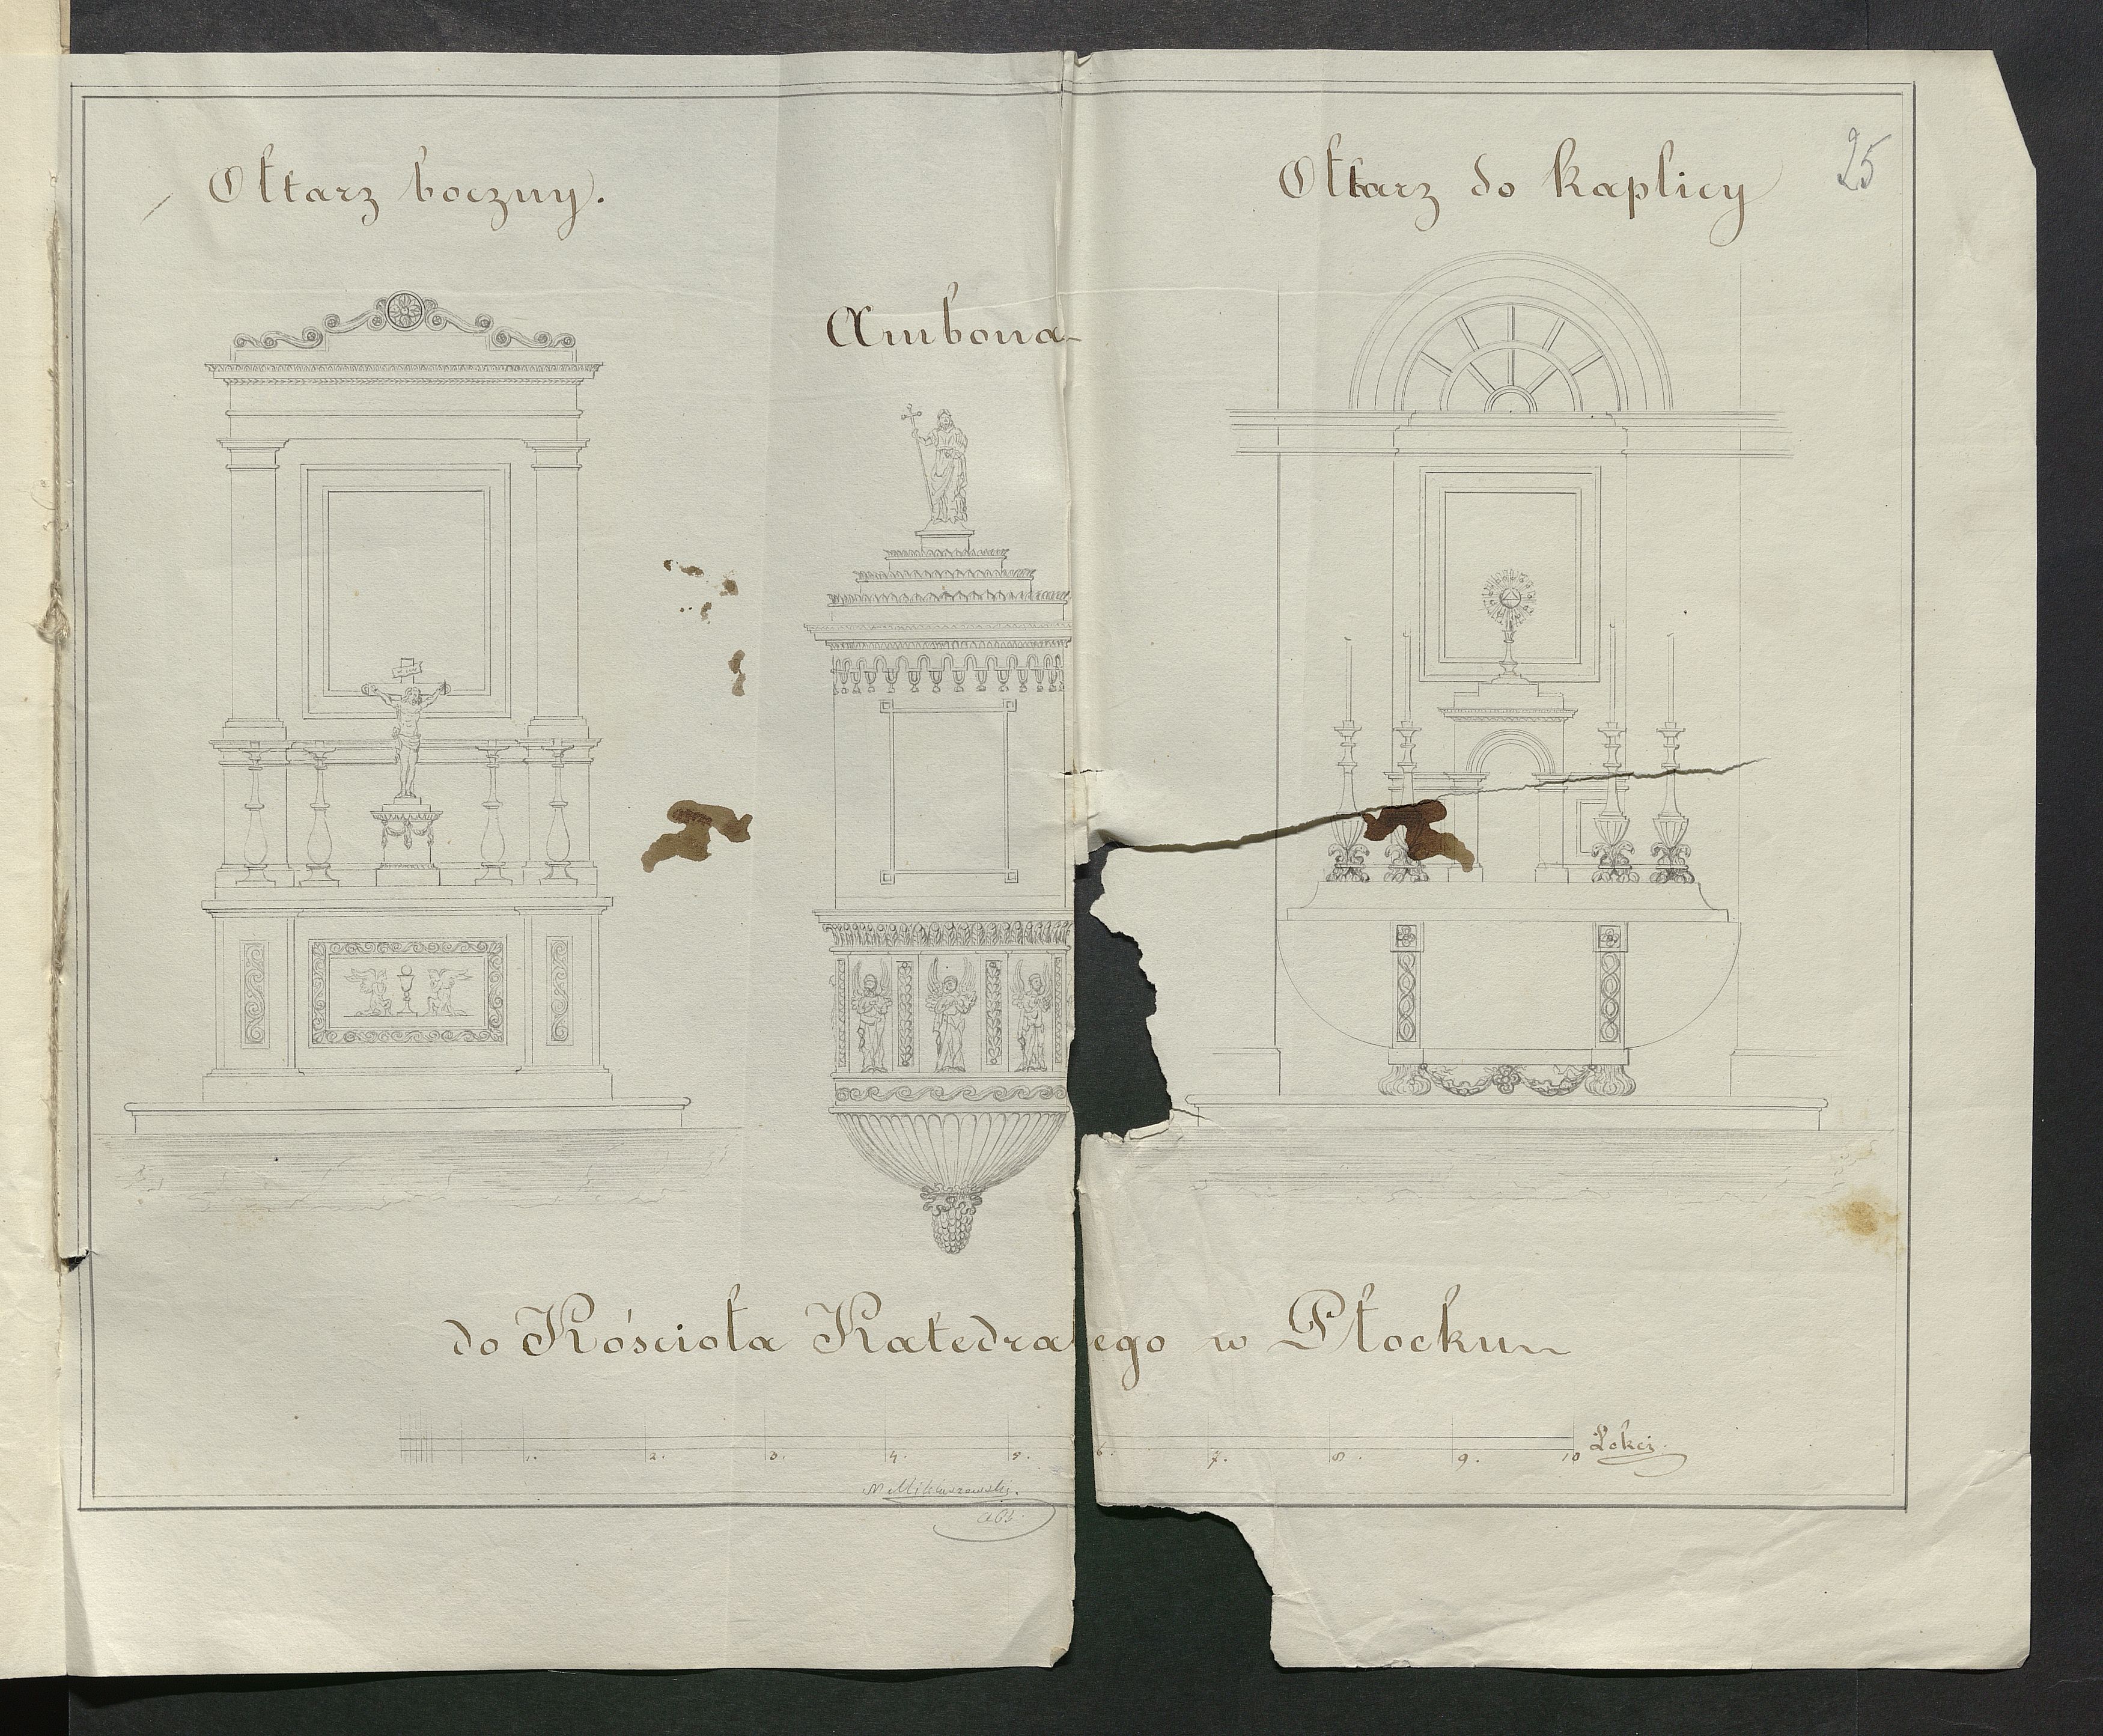 Ołtarz boczny.
Ołtarz do kaplicy
25
Ambona
do Kościoła Katedra ego w Płocku
1. 2. 3. 4. 5. 6. 7. 8. 9. 10 Łokci